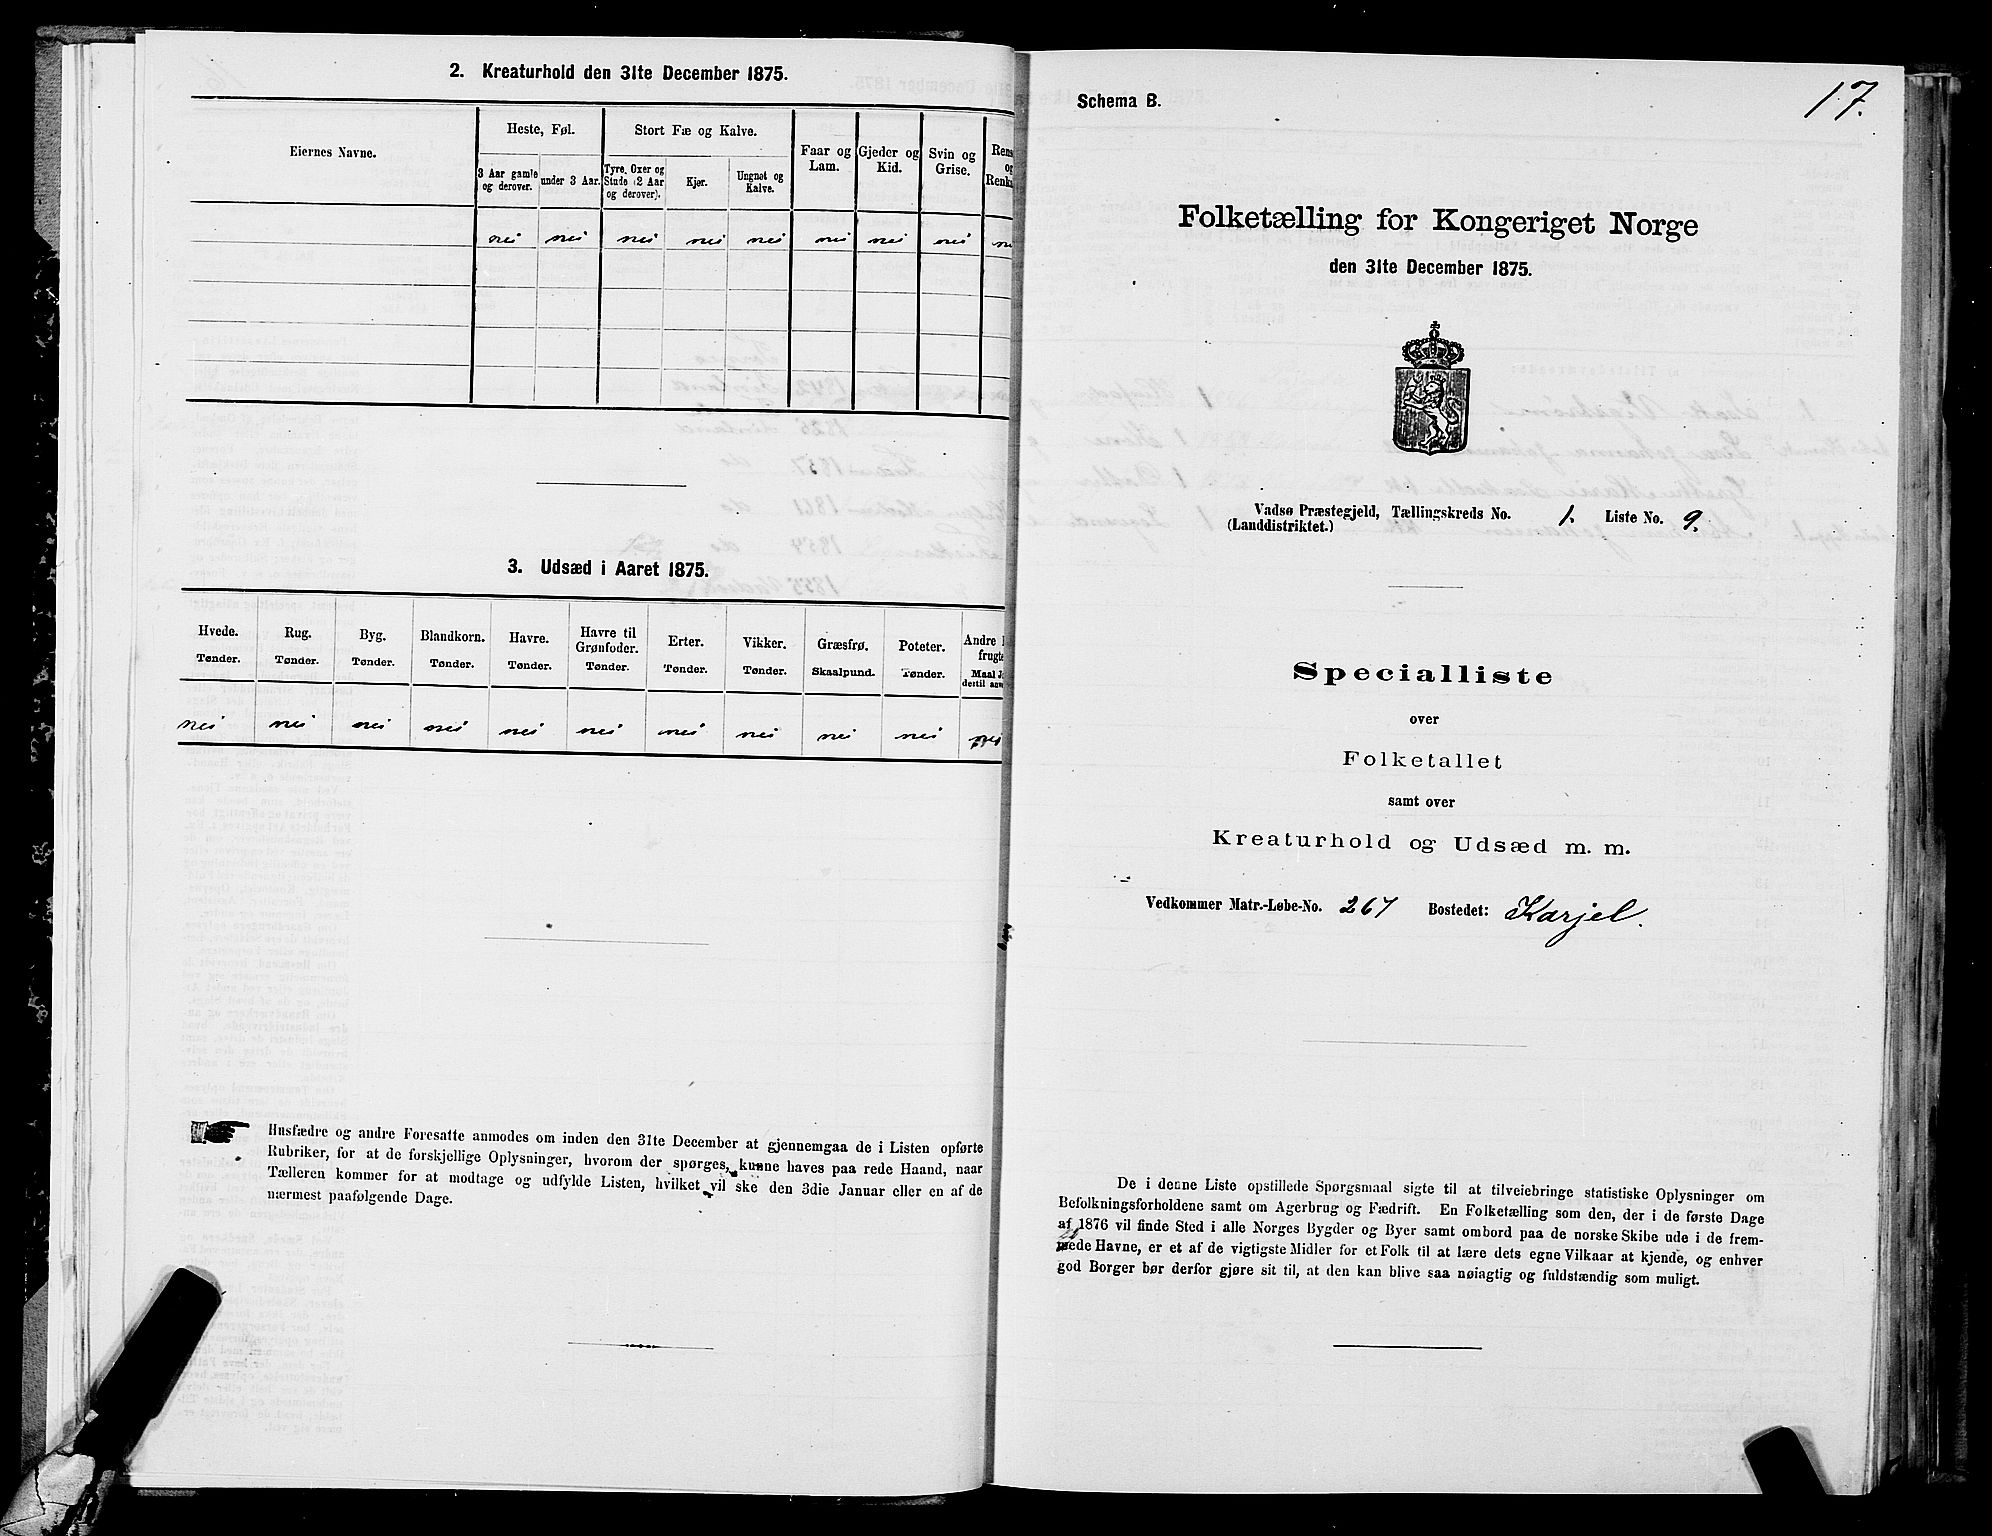 2. Kreaturhold den 31te December 1875.
Eiernes Navne.
Heste, Føl.
Stort Fæ og Kalve.
Faar og Lam.
Gjeder og Kid.
Svin og Grise.
3 Aar gamle og derover.
under 3 Aar.
Tyre, Oxer og Stude (2 Aar og derover).
Kjør.
Ungnøt og Kalve.
nei nei nei nei nei nei nei nei
3. Udsæd i Aaret 1875.
Hvede. Rug. Byg. Blandkorn. Havre. Havre til Grønfoder. Erter. Vikker. Græsfrø. Poteter.
Tønder. Tønder. Tønder. Tønder. Tønder. Tønder. Tønder. Tønder. Skaalpund. Tønder.
nei nei nei nei nei nei nei nei nei nei nei
Husfædre og andre Foresatte anmodes om inden den 31te December at gjennemgaa de i Listen opførte
Rubriker, for at de forskjellige Oplysninger, hvorom der spørges, kunne haves paa rede Haand, naar
Tælleren kommer for at modtage og udfylde Listen, hvilket vil ske den 3die Januar eller en af de
nærmest paafølgende Dage.
17.
Schema B.
Folketælling for Kongeriget Norge
den 31te December 1875.
Vadsø Præstegjeld, Tællingskreds No. 1. Liste No. 9.
(Landdistriktet.)
Specialliste
over
Folketallet
samt over
Kreaturhold og Udsæd m. m.
Vedkommer Matr.-Løbe-No. 267 Bostedet: Karjel.
De i denne Liste opstillede Spørgsmaal sigte til at tilveiebringe statistiske Oplysninger om
Befolkningsforholdene samt om Agerbrug og Fædrift. En Folketælling som den, der i de første Dage
af 1876 vil finde Sted i alle Norges Bygder og Byer samt ombord paa de norske Skibe ude i de frem-
mede Havne, er et af de vigtigste Midler for et Folk til at lære dets egne Vilkaar at kjende, og enhver
god Borger bør derfor gjøre sit til, at den kan blive saa nøiagtig og fuldstændig som muligt.